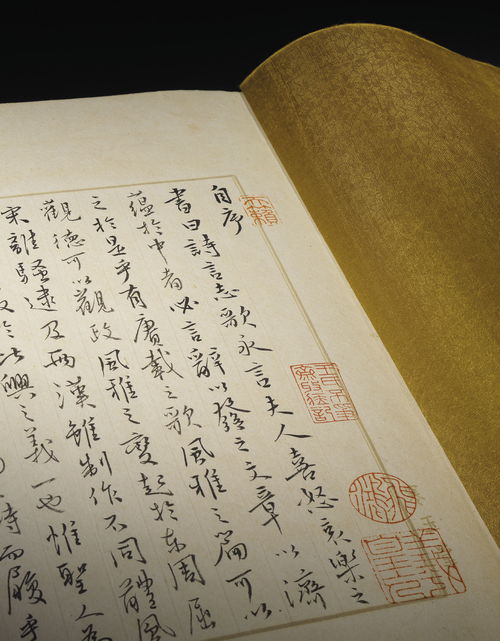 自序
書曰詩言志歌永言夫人喜怒哀樂之
蘊於中者必言辭以發之文章以濟
之於是乎有賡載之歌風雅之篇可以
觀德可以觀政風雅之變起於東周屈
宋離騷逮及兩漢雖制作不同
於比興之義一也惟聖人為
詩而